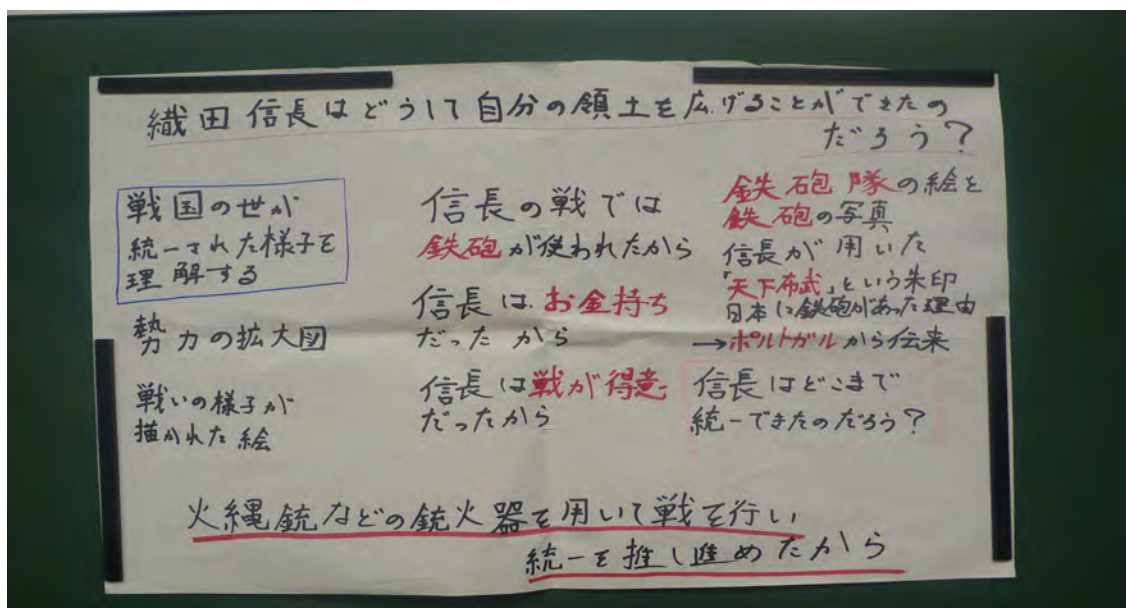 織田信長はどうして自分の領土を広げることができたの
だろう？
戦国の世が
統一された様子を
理解する
勢力の拡大図
戦いの様子が
描かれた絵
信長の戦では
鉄砲が使われたから
信長はお金持ち
だったから
信長は戦が得意
だったから
鉄砲隊の絵と
鉄砲の写真
信長が用いた
「天下布武」という朱印
日本に鉄砲があった理由
→ポルトガルから伝来
信長はどこまで
統一できたのだろう？
火縄銃などの銃火器を用いて戦を行い
統一を推し進めたから